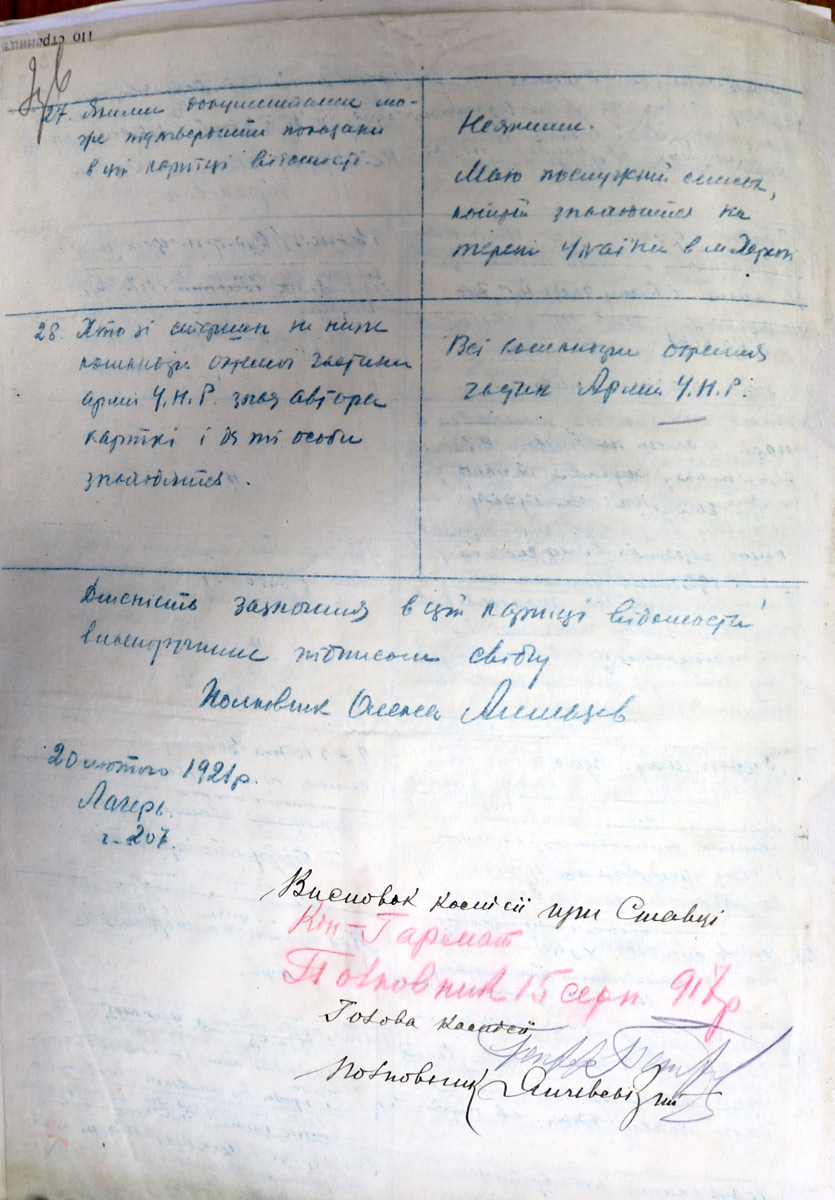 27. Якими документами мо-
же підтвердити показани
в ції картці відомости.
Неякими.
Маю послужний список,
котрий знаходится на
терені України в м.
28. Хто зі старшин не ниж
командира окремої частини
армії У.Н.Р. знає автора
карткі і де ті особи
знаходятся.
Всі командири окремих
частин Армії У.Н.Р.
Дійсність зазначених в ції картці відомости
власноручним підписом свідчу
Полковник Олекса Алмазов
20 лютого 1921 р.
Лагерь
ч. 207.
Висновок комісії при Ставці
Кін-Гармат
Полковник 15 серп 917 р
Голова комісії
Полковник Янчевський